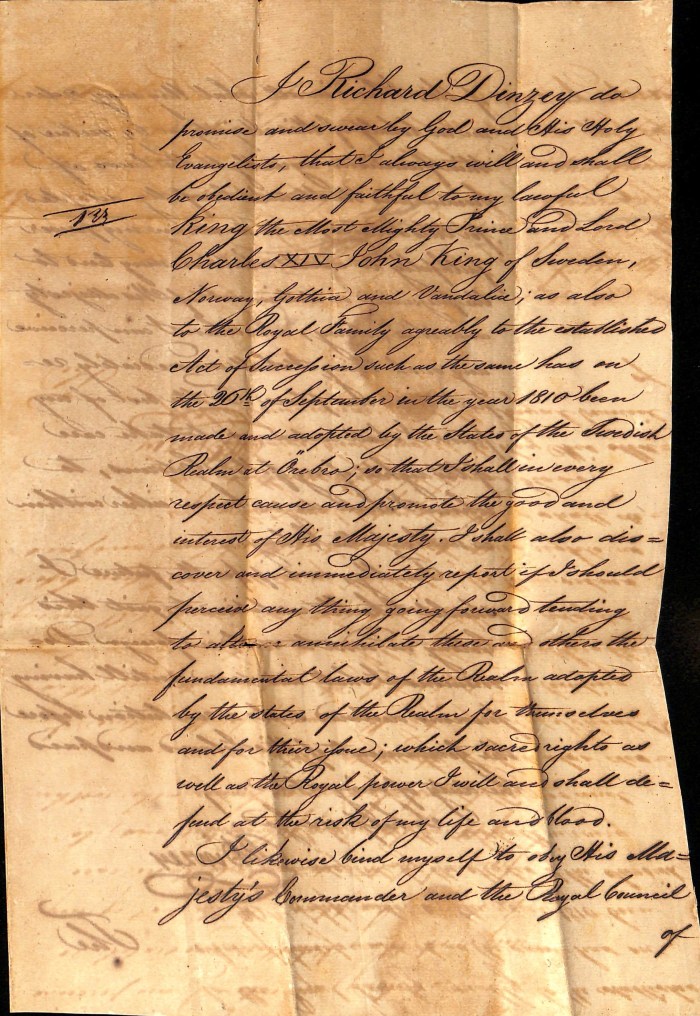 I Richard Dinzey do
promise and swear by God and His Holy
Evangelists, that I always will and shall
be obedient and faithful to my lawful
King the Most Mighty Prince and Lord
Charles XIV John King of Sweden,
Norway, Gothia and Vandalia; as also
to the Royal Family agreably to the established
Act of Sucession such as the same has on
the 26th of September in the year 1810 been
made and adopted by the States of the Swedish
Realm at Örebro; so that I shall in every
respect cause and promote the good and
interest of His Majesty. I shall also dis=
cover and immediately report if I should
perceive any thing going forward tending
to annihilate these and others the
fundamental laws of the Realm adopted
by the states of the Realm for themselves
and for their issue; which sacred rights as
well as the Royal power I will and shall de=
fend at the risk of my life and blood.
I likewise bind myself to obey His Ma=
jesty's Commander and the Royal Council
of